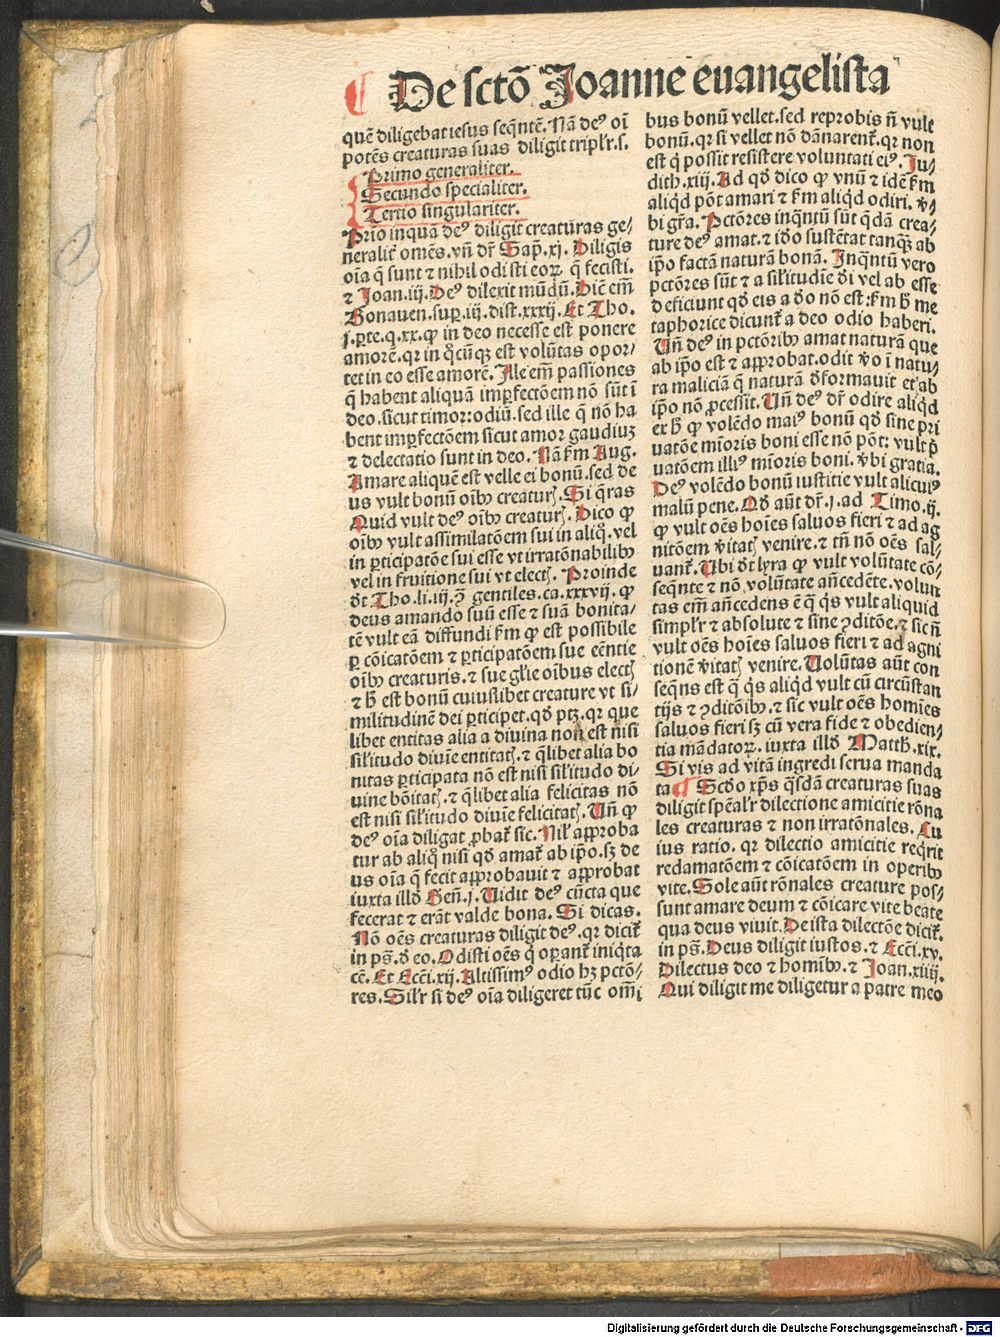 ¶ De sctō Joanne euangelista
quē diligebat iesus seq̄ntē. Nā deꝰ oī
potēs creaturas suas diligit tripl'r.s.
Primo generaliter.
Secundo specialiter.
Tertio singulariter.
Prio inquā deꝰ diligit creaturas ge⸗
neralit̄ omēs. vn̄ dr̄ Sap̄.xj. Diligis
oīa q̄ sunt ⁊ nihil odisti eoꝝ q̄ fecisti.
⁊ Joan.iij. Deꝰ dilexit mūdū. Dic̄ em̄
Bonauen. sup̄.iij. dist.xxxij. Et Tho.
j.ꝑte.q.xx. ꝙ in deo necesse est ponere
amorē. qr in q̊cūqꝫ est volūtas opor⸗
tet in eo esse amorē. Ille em̄ passiones
q̄ habent aliquā imꝑfectōem nō sūt ī
deo. sicut timor: odiū. sed ille q̄ nō ha
bent imꝑfectōem sicut amor gaudiuꝫ
⁊ delectatio sunt in deo. Nā ẜm Aug.
Amare aliquē est velle ei bonū. sed de
us vult bonū oībꝰ creaturꝭ. Si q̄ras
Quid vult deꝰ oībꝰ creaturꝭ. Dico ꝙ
oībꝰ vult assimilatōem sui in aliq̊. vel
in ꝑticipatōe sui esse vt irratōnabilibꝰ
vel in fruitione sui vt electꝭ. Proinde
dt̄ Tho.li.iij.ꝯ̄ gentiles.ca.xxxvij. ꝙ
deus amando suū esse ⁊ suā bonita⸗
tē vult eā diffundi ẜm ꝙ est possibile
ꝑ cōicatōem ⁊ ꝑticipatōem sue eēntie
oībꝰ creaturis. ⁊ sue gl'ie oībus electꝭ
⁊ h̄ est bonū cuiuslibet creature vt si⸗
militudinē dei ꝑticipet. qd̄ ptꝫ. qr que
libet entitas alia a diuina non est nisi
sil'itudo diuīe entitatꝭ. ⁊ q̄libet alia bo
nitas ꝑticipata nō est nisi sil'itudo di⸗
uine bōitatꝭ. ⁊ q̄libet alia felicitas nō
est nisi sil'itudo diuīe felicitatꝭ. Un̄ ꝙ
deꝰ oīa diligat ꝓbat̄ sic. Nil' approba
tur ab aliq̊ nisi qd̄ amat̄ ab ip̄o. sꝫ de
us oīa q̄ fecit approbauit ⁊ approbat
iuxta illd̄ Gen̄.j. Uidit deꝰ cūcta que
fecerat ⁊ erāt valde bona. Si dicas.
Nō oēs creaturas diligit deꝰ. qr dicit̄
in ps̄. d̄ eo. Odisti oēs q̇ oꝑant̄ iniq̇ta
cē. Et Ecc̄i.xij. Altissimꝰ odio hꝫ pctō⸗
res. Sil'r si deꝰ oīa diligeret tūc omī
bus bonū vellet. sed reprobis n̄ vult
bonū. qr si vellet nō dānarent̄. qr non
est q̇ possit resistere voluntati eiꝰ. Ju⸗
dith.xiij. Ad qd̄ dico ꝙ vnū ⁊ idē ẜm
aliqd̄ pōt amari ⁊ ẜm aliqd̄ odiri. v̄⸗
bi gr̄a. Pctōres inq̄ntū sūt q̄dā crea⸗
ture deꝰ amat. ⁊ iō sustētat tanq̄ꝫ ab
ip̄o factā naturā bonā. Inq̄ntū vero
pctōres sūt ⁊ a sil'itudīe di vel ab esse
deficiunt qd̄ eis a do nō est: ẜm h̄ me
taphorice dicunt̄ a deo odio haberi.
Un̄ deꝰ in pctōribꝰ amat naturā que
ab ip̄o est ⁊ approbat. odit v̄o ī natu⸗
ra maliciā q̄ naturā d̄formauit et ab
ip̄o nō ꝓcessit. Un̄ deꝰ dr̄ odire aliqd̄
ex h̄ ꝙ volēdo maiꝰ bonū qd̄ sine pri
uatōe mīoris boni esse nō pōt: vult p̄
uatōem illiꝰ mīoris boni. v̄bi gratia.
Deꝰ volēdo bonū iustitie vult alicuiꝰ
malū pene. Qd̄ aūt dr̄.j.ad Timo.ij.
ꝙ vult oēs hoīes saluos fieri ⁊ ad ag
nitōem v̄itatꝭ venire. ⁊ tn̄ nō oēs sal⸗
uant̄. Ubi dt̄ lyra ꝙ vult volūtate cō⸗
seq̄nte ⁊ nō volūtate an̄cedēte. volun
tas em̄ an̄cedens ē q̄ q̇s vult aliquid
simpl'r ⁊ absolute ⁊ sine ꝯditōe. ⁊ sic n̄
vult oēs hoīes saluos fieri ⁊ ad agni
tionē v̄itatꝭ venire. Uolūtas aūt con
seq̄ns est q̄ q̇s aliqd̄ vult cū circūstan
tijs ⁊ ꝯditōibꝰ. ⁊ sic vult oēs homīes
saluos fieri sꝫ cū vera fide ⁊ obedien⸗
tia mādatoꝝ. iuxta illd̄ Matth.xix.
Si vis ad vitā ingredi serua manda
ta ¶ Scd̄o xp̄s q̄sdā creaturas suas
diligit spēal'r dilectione amicitie rōna
les creaturas ⁊ non irratōnales. Cu
ius ratio. qr dilectio amicitie req̇rit
redamatōem ⁊ cōicatōem in operibꝰ
vite. Sole aūt rōnales creature pos⸗
sunt amare deum ⁊ cōicare vite beate
qua deus viuit. De ista dilectōe dicit̄
in ps̄. Deus diligit iustos. ⁊ Ecc̄i.xv.
Dilectus deo ⁊ homībꝰ. ⁊ Joan.xiiij.
Qui diligit me diligetur a patre meo
Digitalisierung gefördert durch die Deutsche Forschungsgemeinschaft - DFG